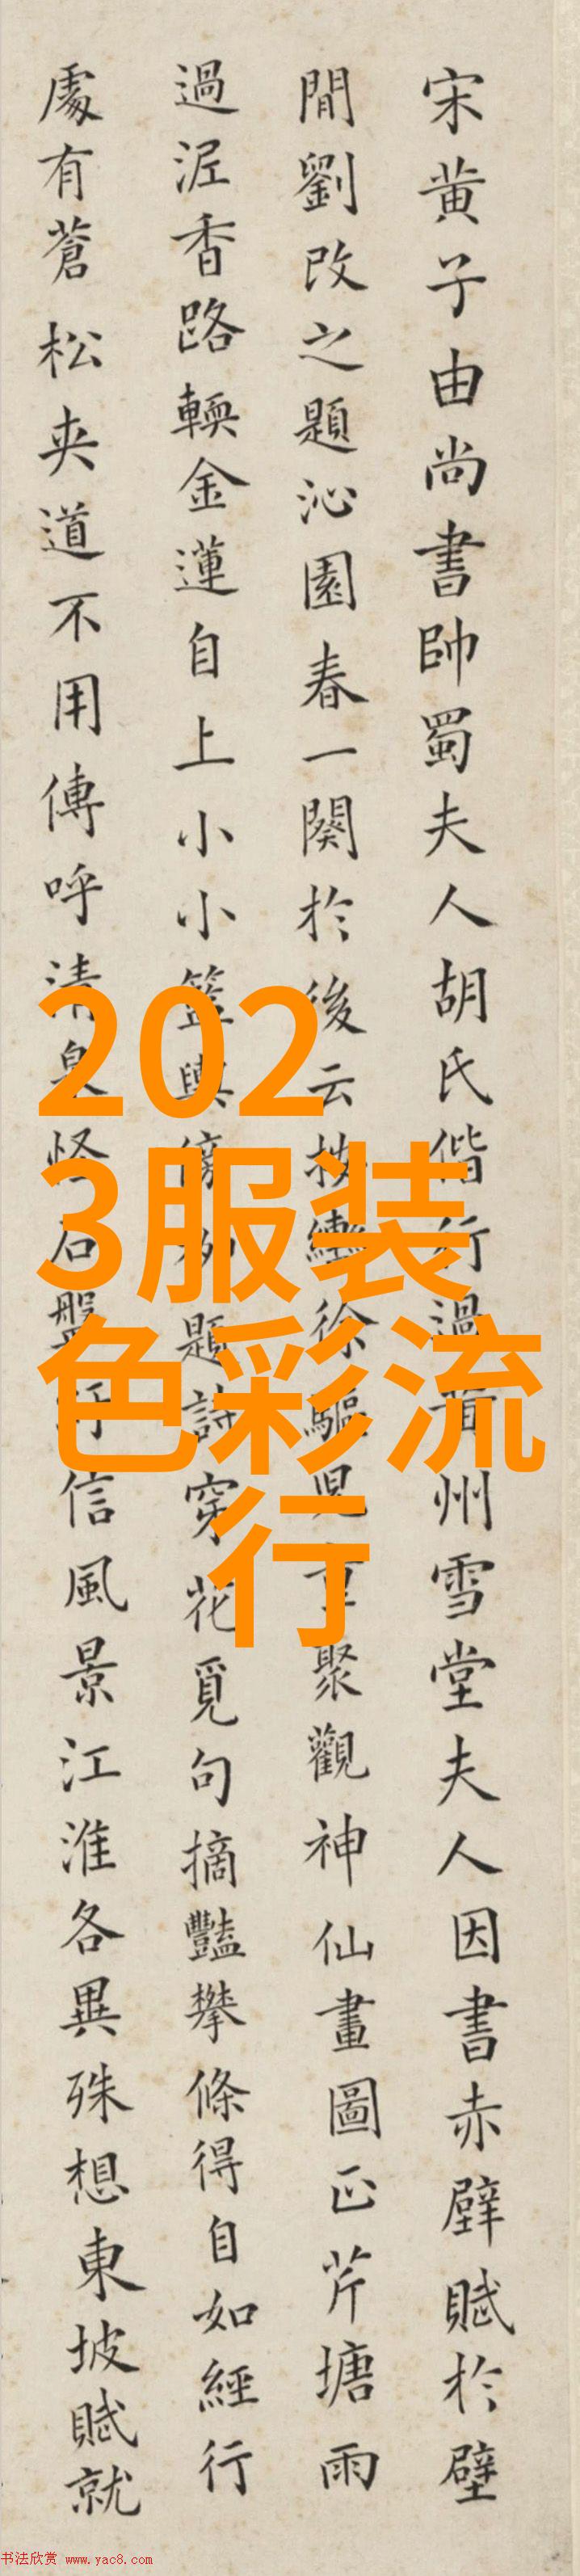 宋黄子由尚書帥蜀夫人胡氏偕行過黄州雪堂夫人因書赤壁賦於壁
間劉改之題沁園春一闋於後云按轡徐驅兒童聚觀神仙畫圖正芹塘雨
過泥香路輭金蓮自上小小籃輿傍柳題詩穿花覓句摘豔攀條得自如經行
處有蒼松夾道不用傳呼清泉怪石盤紆信風景江淮各異殊想東坡賦就
202
3服装
色彩流
行
书法欣赏 www.yac8.com